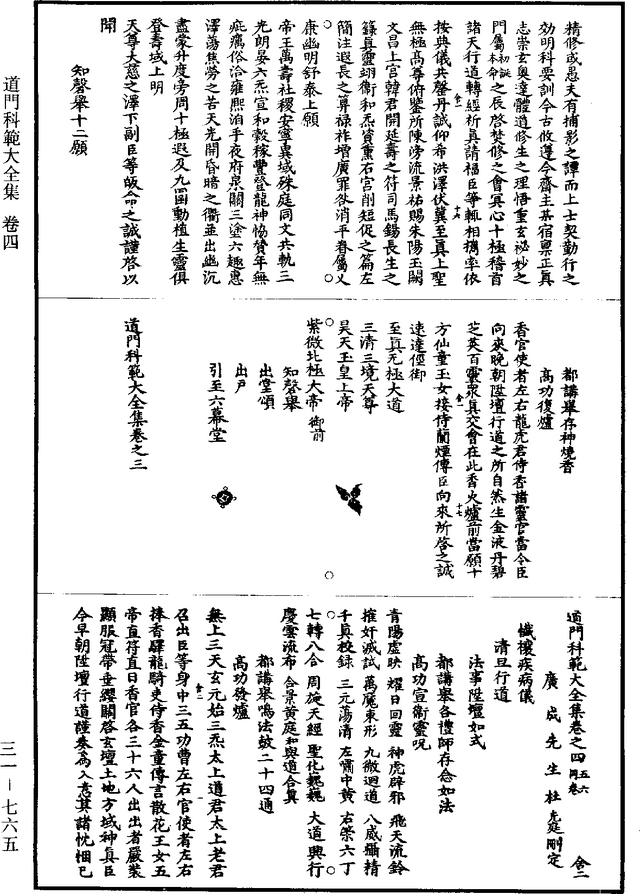 道門科範大全集 卷四
精修或愚夫有捕影之譚而上士契勤行之
効明科要訓今古攸遵今齋主某宿稟正真
志崇玄奧達體道修生之理悟重玄祕妙之
門屬初誕本命之辰啓焚修之會冥心十極稽首
諸天行道轉經祈真請福臣等輒相撝率依
按典儀共磬丹誠仰希洪澤伏冀至真上聖
無極高尊俯鑒所陳滂流景祐賜朱陽玉闕
文昌上宮韓君開延壽之符司馬錫長生之
籙真靈翊衛和炁資熏右宮削短促之篇左
簡注遐長之算祿祚增廣罪欲消平眷屬乂
康幽明舒泰上願
帝王萬壽社稷安寧異域殊庭同文共軌三
光朗晏六炁宣和穀稼豐登龍神協贊年無
疵癘俗洽雍熙洎乎夜府泉關三塗六趣惠
澤蕩焦勞之苦天光開昏暗之衢並出幽沉
盡蒙升度旁周十極遐及九圍動植生靈俱
登壽域上明
天尊大慈之澤下副臣等皈命之誠謹啓以
聞
知磬舉十二願
都講舉存神燒香
高功復爐
香官使者左右龍虎君侍香諸靈官當令臣
向來晚朝陞壇行道之所自然生金液丹碧
芝英百靈衆真交會在此香火爐前當願十
方仙童玉女接侍蘭煙傳臣向來所啓之誠
速達徑御
至真无極大道
三清三境天尊
昊天玉皇上帝
紫微北極大帝 御前
知磬舉
出堂頌
出戶
引至六幕堂
道門科範大全集卷之三
道門科範大全集卷之四 五六同卷 舍二
廣成先生杜光庭刪定
懺禳疾病儀
清旦行道
法事陞壇如式
都講舉各禮師存念如法
高功宣衛靈呪
青陽虛映 耀日回靈 神虎辟邪 飛天流鈴
摧奸滅試 萬魔束形 九微迴道 八威攝精
千真校錄 三元蕩清 左嘯中黃 右策六丁
七轉八合 周旋天經 聖化巍巍 大道興行
慶雲流布 合景黃庭 和與道合真
都講舉鳴法鼓二十四通
高功發爐
無上三天玄元始三炁太上道君太上老君
召出臣等身中三五功曹左右官使者左右
捧香驛龍騎吏侍香金童傳言散花玉女五
帝直符直日香官各三十六人出出者嚴裝
顯服冠帶垂纓關啓玄壇土地方域神真臣
今早朝陞壇行道謹奏為入意其諸忱悃已
三一－七六五